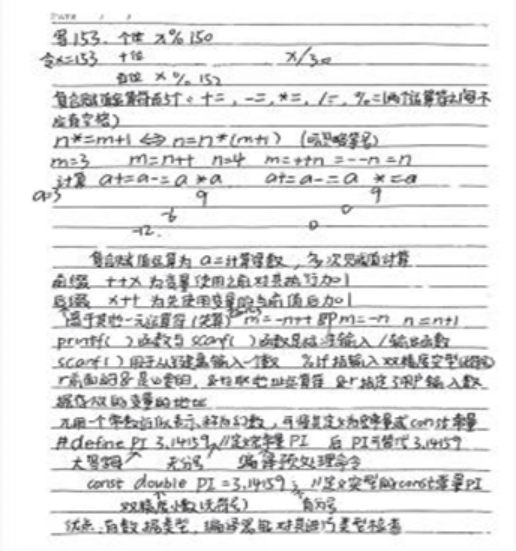 DATE / /
写153. 个位 x%150
令x=153 十位 x/30
百位 x%152
复合赋值运算符有5个。+=，-=，*=，/=，%=(两个运算符之间不
应有空格)
n*=m+1 ⇔ n=n*(m+1) (括号)
m=3 m=n++ n=4 m=++n =--n=n
计算 a+=a-=a*a a+=a-=a*=a
a=3 9 9
-6 0
-12. 0
复合赋值运算为 a=计算 多次赋值计算
前缀 ++x 为变量使用之前对其执行加1
后缀 x++ 为先使用变量的当前值后加1
高于其他一元运算符 m=-n++ 即m=-n n=n+1
printf( )函数与scanf( )函数是标准输入/输出函数
scanf( )用于从键盘输入一个数 %lf 指输入双精度实型
r前面的&是必要的，&为取地址运算符 &r指定了用户输入数
据存放的变量的地址
π用一个常数近似表示，称为幻数，可将其定义为宏常量或const常量
#define PI 3.14159 //定义宏常量PI 后PI可替代3.14159
大写字母 无分号 编译预处理命令
const double PI=3.14159; //定义实型的const常量PI
双精度小数(无符号) 有分号
优点：有数据类型，编译器能对其进行类型检查